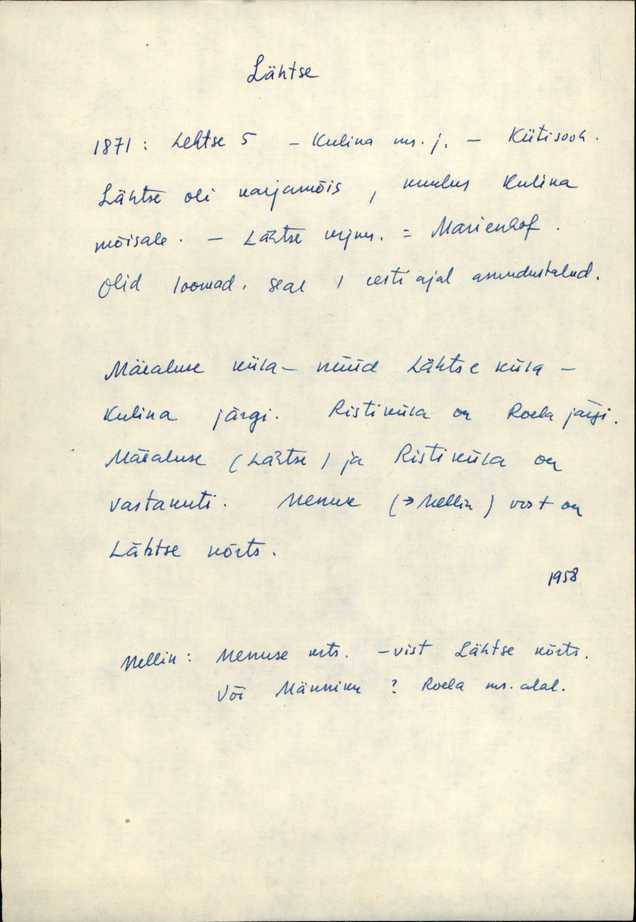 Lähtse
1871: Lehtse 5 – Kulina ms. j. – Kütisooh.
Lähtse oli karjamõis, kuulus Kulina
mõisale. – Lähtse krjms. = Marienhof.
Olid loomad, seal, eesti ajal asundustalud.
Mäealuse küla – nüüd Lähtse küla –
Kulina järgi. Ristiküla on Roela järgi.
Mäealuse (Lähtse) ja Ristiküla on
vastakuti. Nemuse (→ Mellin) vist on
Lähtse kõrts.
1958
Mellin: Nemuse krts. – vist Lähtse kõrts.
Või Männiku? Roela ms. alal.